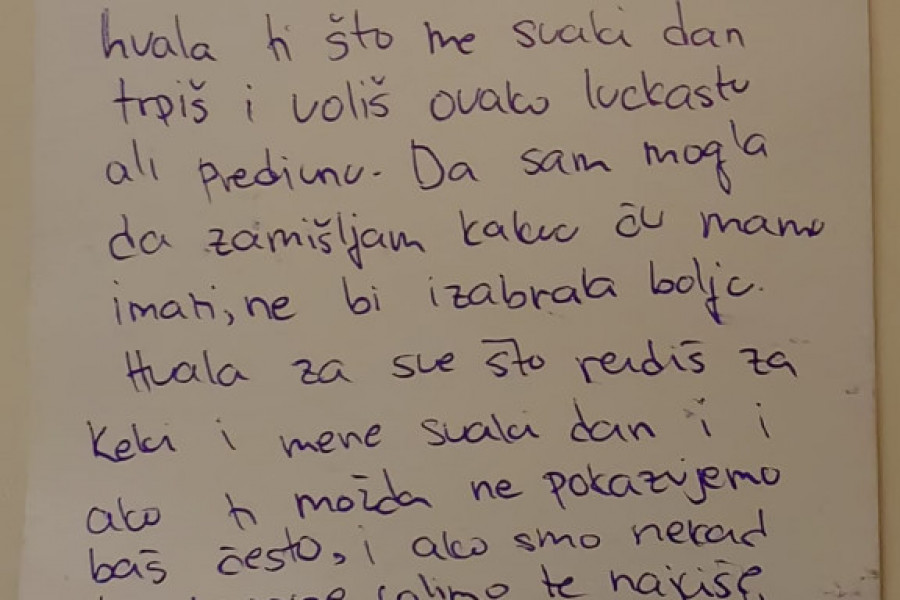 hvala ti što me svaki dan
trpiš i voliš ovako luckastu
ali predivnu. Da sam mogla
da zamišljam kakvu ću mamu
imati, ne bi izabrala bolje.
Hvala za sve što radiš za
Keki i mene svaki dan i i
ako ti možda ne pokazujemo
baš često, i ako smo nekad
volimo te najviše.